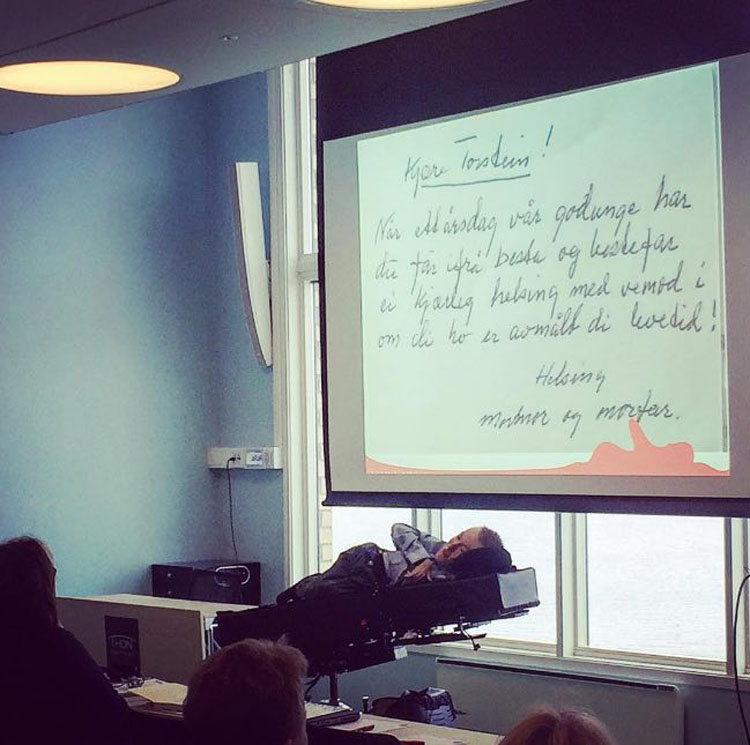 Kjære Torstein!
Når ettårsdag vår godunge har
du får ifrå besta og bestefar
ei kjærleg helsing med vemod i
om di ho er avmålt di levetid!
Helsing
mormor og morfar.
THON